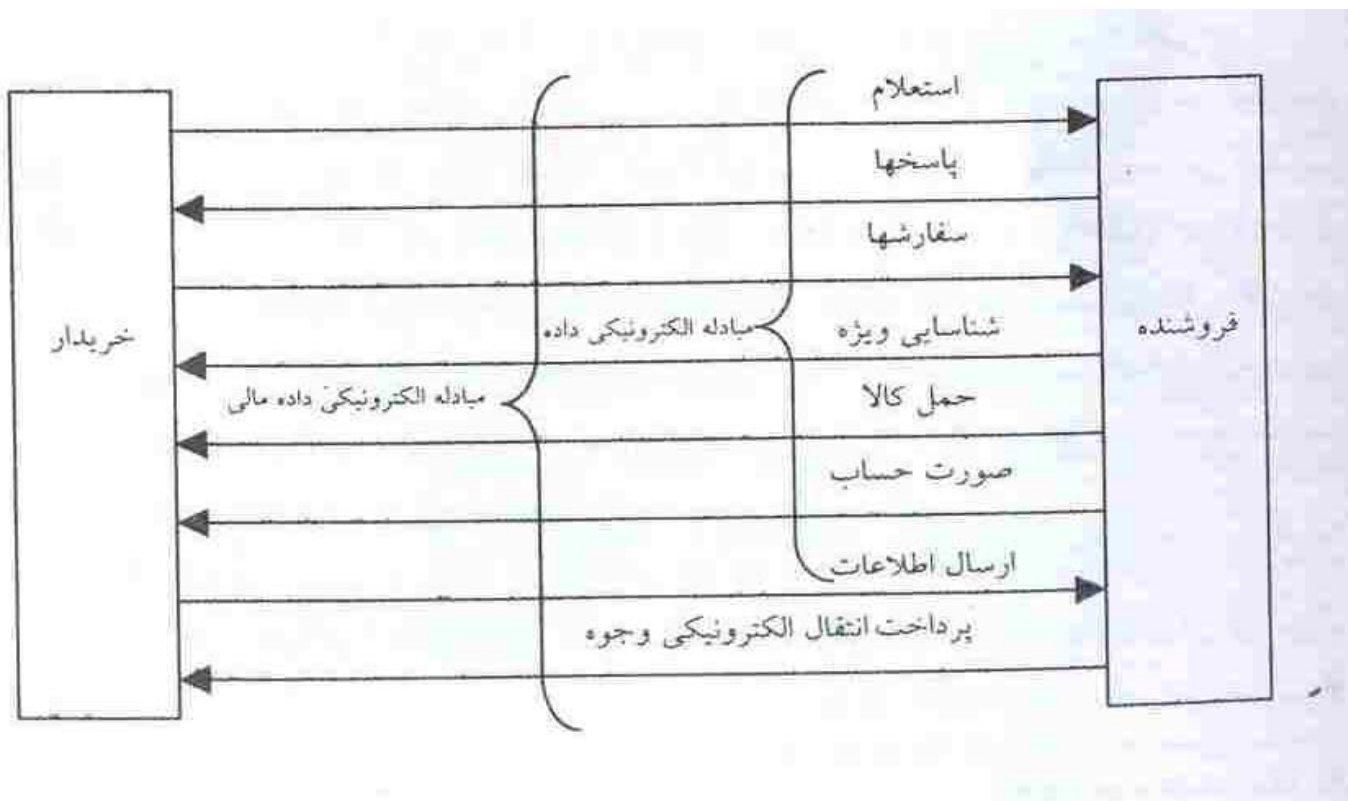 استعلام
پاسخها
سفارشها
شناسایی ویژه
حمل کالا
صورت حساب
ارسال اطلاعات
پرداخت انتقال الکترونیکی وجوه
فروشنده
مبادله الکترونیکی داده
مبادله الکترونیکی داده مالی
خریدار